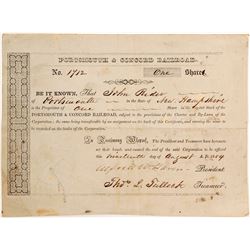 PORTSMOUTH & CONCORD RAILROAD.
No. 1712 One Share
BE IT KNOWN, That John Rider
of Portsmouth in the State of New Hampshire
is the Proprietor of One Share in the Capital Stock of the
PORTSMOUTH & CONCORD RAILROAD, subject to the provisions of the Charter and By-Laws of the
Corporation, the same being transferable by an assignment on the back of this
recorded in the books of the Corporation.
In Testimony Whereof, The President and Treasurer have hereunto
set their hands and caused the seal of the said Corporation to be affixed
the nineteenth day of August
President
Treasurer